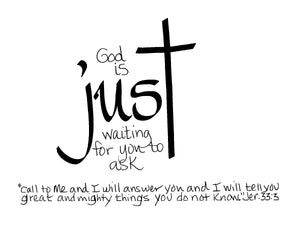 God
is
just
waiting
for you to
ask
"call to Me and I will answer you and I will tell you
great and mighty things you do not know." Jer. 33:3